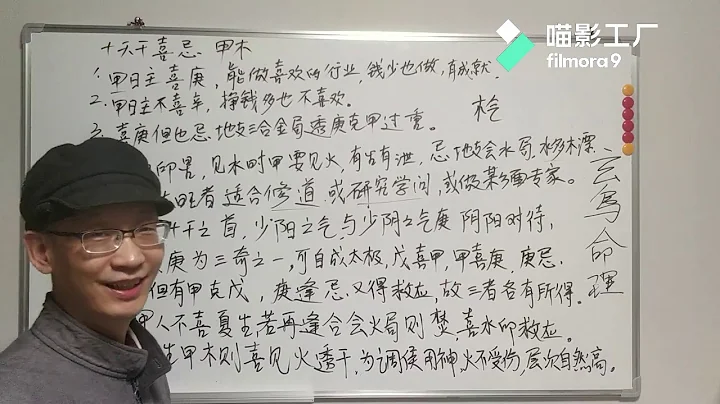 十天干喜忌 甲木
1. 甲日主喜庚，能做喜欢的行业，钱少也做，有成就
2. 甲日主不喜辛，挣钱多也不喜欢。
3. 喜庚但也忌地支三合金局透庚克甲过重。
印害，见水时甲要见火，有生有泄，忌地支会水局，水多木漂、
旺者适合修道或研究学问，或做某方面专家。
十干之首，少阳之气与少阴之气庚阴阳对待，
庚为三奇之一，可自成太极，戊喜甲，甲喜庚，庚忌，
但有甲克戊，庚逢忌又得救应，故三者各有所得。
甲人不喜夏生，若再逢合会火局则焚，喜水印救应。
生甲木则喜见火透干，为调候用神，火不受伤，层次自然高。
云鸟命理
喵影工厂
filmora9